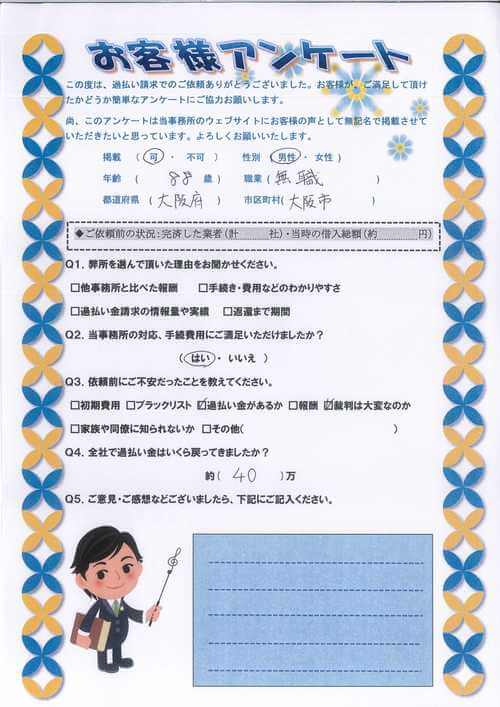 お客様アンケート
この度は、過払い請求でのご依頼ありがとうございました。お客様が、ご満足して頂け
たかどうか簡単なアンケートにご協力お願いします。
尚、このアンケートは当事務所のウェブサイトにお客様の声として無記名で掲載させて
いただきたいと思っています。よろしくお願いいたします。
掲載 (可・不可) 性別(男性・女性)
年齢 (88歳) 職業(無職)
都道府県(大阪府) 市区町村(大阪市)
◆ご依頼前の状況:完済した業者(計 社)・当時の借入総額(約 円)
Q1. 弊所を選んで頂いた理由をお聞かせください。
□他事務所と比べた報酬 □手続き・費用などのわかりやすさ
□過払い金請求の情報量や実績 □返還まで期間
Q2. 当事務所の対応、手続費用にご満足いただけましたか?
(はい・いいえ)
Q3. 依頼前にご不安だったことを教えてください。
□初期費用 □ブラックリスト ☑過払い金があるか □報酬 ☑裁判は大変なのか
□家族や同僚に知られないか □その他( )
Q4. 全社で過払い金はいくら戻ってきましたか?
約(40)万
Q5. ご意見・ご感想などございましたら、下記にご記入ください。